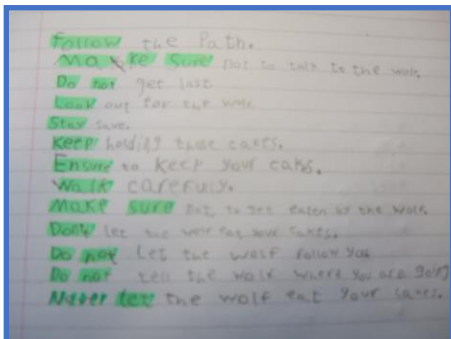 Follow the Path.
Make Sure not to talk to the wolf.
Do not get lost.
Look out for the wolf.
Stay save.
Keep holding those cakes.
Ensure to keep your cakes.
Walk carefuly.
Make sure not to get eaten by the wolf.
Don't let the wolf eat your cakes.
Do not Let the wolf follow you
Do not tell the wolf where you are going
Never let the wolf eat your cakes.